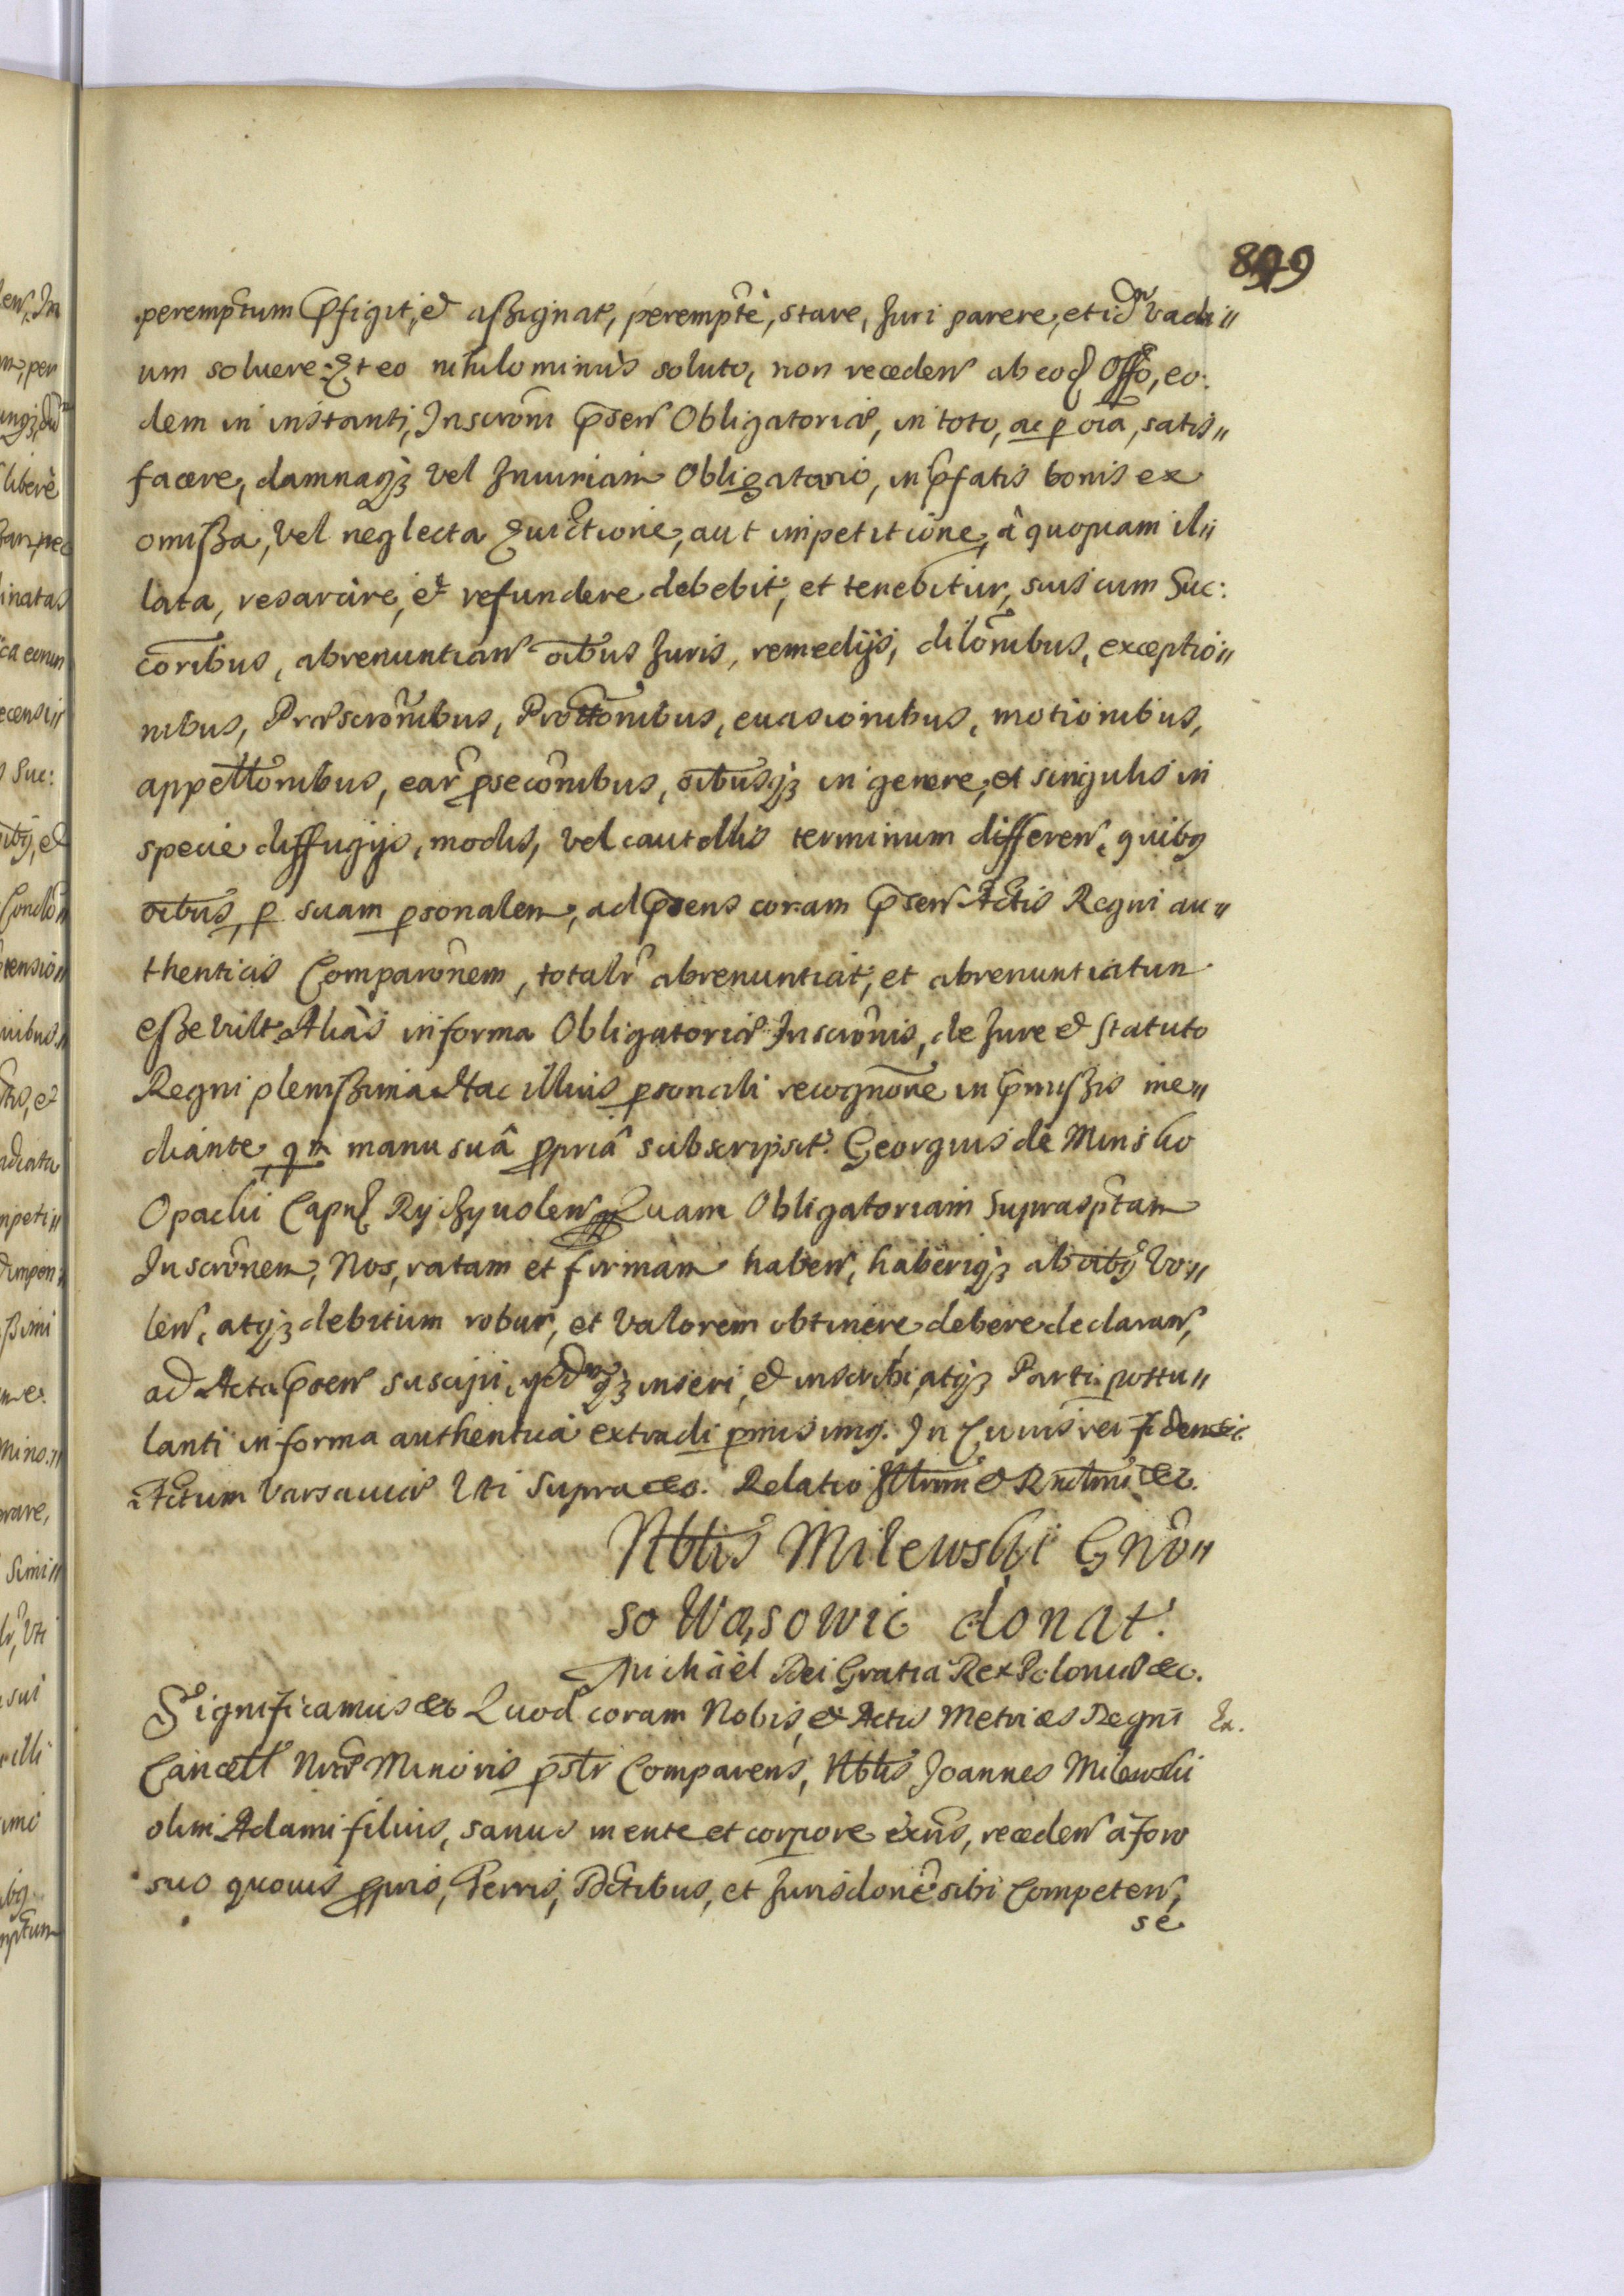 899
peremptum p̃figit, et assignat, perempte, stare, Juri parere, et id Vadi"
um soluere: Et eo nihilominus soluto, non receden̄ ab eod Offo, eo:
dem in instanti, Inscroni p̃sen̄ Obligatoriæ, in toto, ac p oĩa, satis"
facere, damnaqȝ vel Iniuriam Obligatorio, in p̃fatis bonis ex
omissa, vel neglecta Euictione, aut impetitione, à quopiam il"
lata, resarcire, et refundere debebit, et tenebitur, suis cum Suc:
coribus, abrenuntian̄ oĩbus Juris, remedijs, dilõnibus, exceptio"
nibus, Præscrõnibus, Prottõnibus, euasionibus, motionibus,
appellõnibus, ear̃ psecõnibus, oĩbusqȝ in genere, et singulis in
specie diffugijs, modis, vel cautellis terminum differen̄, quibꝯ
oĩbus, p suam psonalem, ad p̃sens coram p̃sen̄ Actis Regni au"
thenticis Comparõnem, totalr̃ abrenuntiat, et abrenuntiatum
esse vult. Aliàs in forma Obligatoriæ Inscrõnis, de Jure et Statuto
Regni plenissima. Hac illius psonali recognõne in p̃missis me"
diante qm̃ manu suâ ppriâ subscripsit. Georgius de Minsko
Opacki Capnl Ryczywolen̄ Quam Obligatoriam Suprasp̃tam
Inscrõnem, Nos, ratam et firmam haben̄, haberiqȝ ab oĩbꝯ vo"
len̄, atqȝ debitum robur, et valorem obtinere debere declaran̄,
ad Acta p̃sen̄ suscipi, inseri, et inscribi, atqȝ Parti postu"
lanti in forma authentica extradi pmisimꝯ. In Cuius rei fidem etc.
Actum Varsauiæ Uti Supra etc. Relatio Illrmi et Rndmi etc.
Nbilis Milewski Gnõ"
so Wąsowic donat.
Michäel Dei Gratia Rex Poloniæ etc.
Significamus etc Quod coram Nobis, et Actis Metrices Regni Ex.
Cancell Nræ Minoris psltr Comparens, Nbilis Joannes Milewski
olim Adami filius, sanus mente et corpore exñs, receden̄ à foro
suo quouis pprio, Terris, Dctibus, et Jurisdone sibi Competen̄,
se